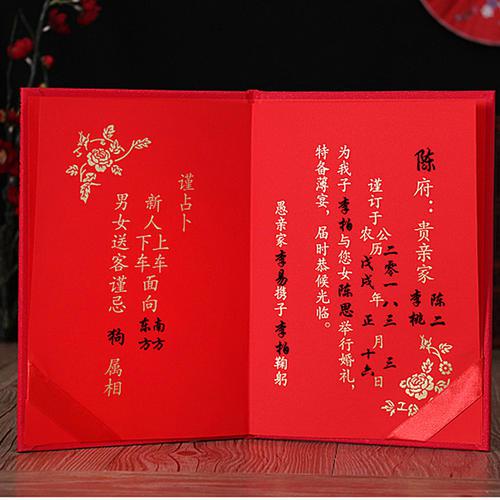 陈府：贵亲家 陈二 李桃
谨订于公农历二零一八戊戌年三正月三十六日
为我子李柏与您女陈思举行婚礼，
特备薄宴，届时恭候光临。
愚亲家李易携子李柏鞠躬
谨占卜
新人上车下车面向南方东方
男女送客谨忌狗属相